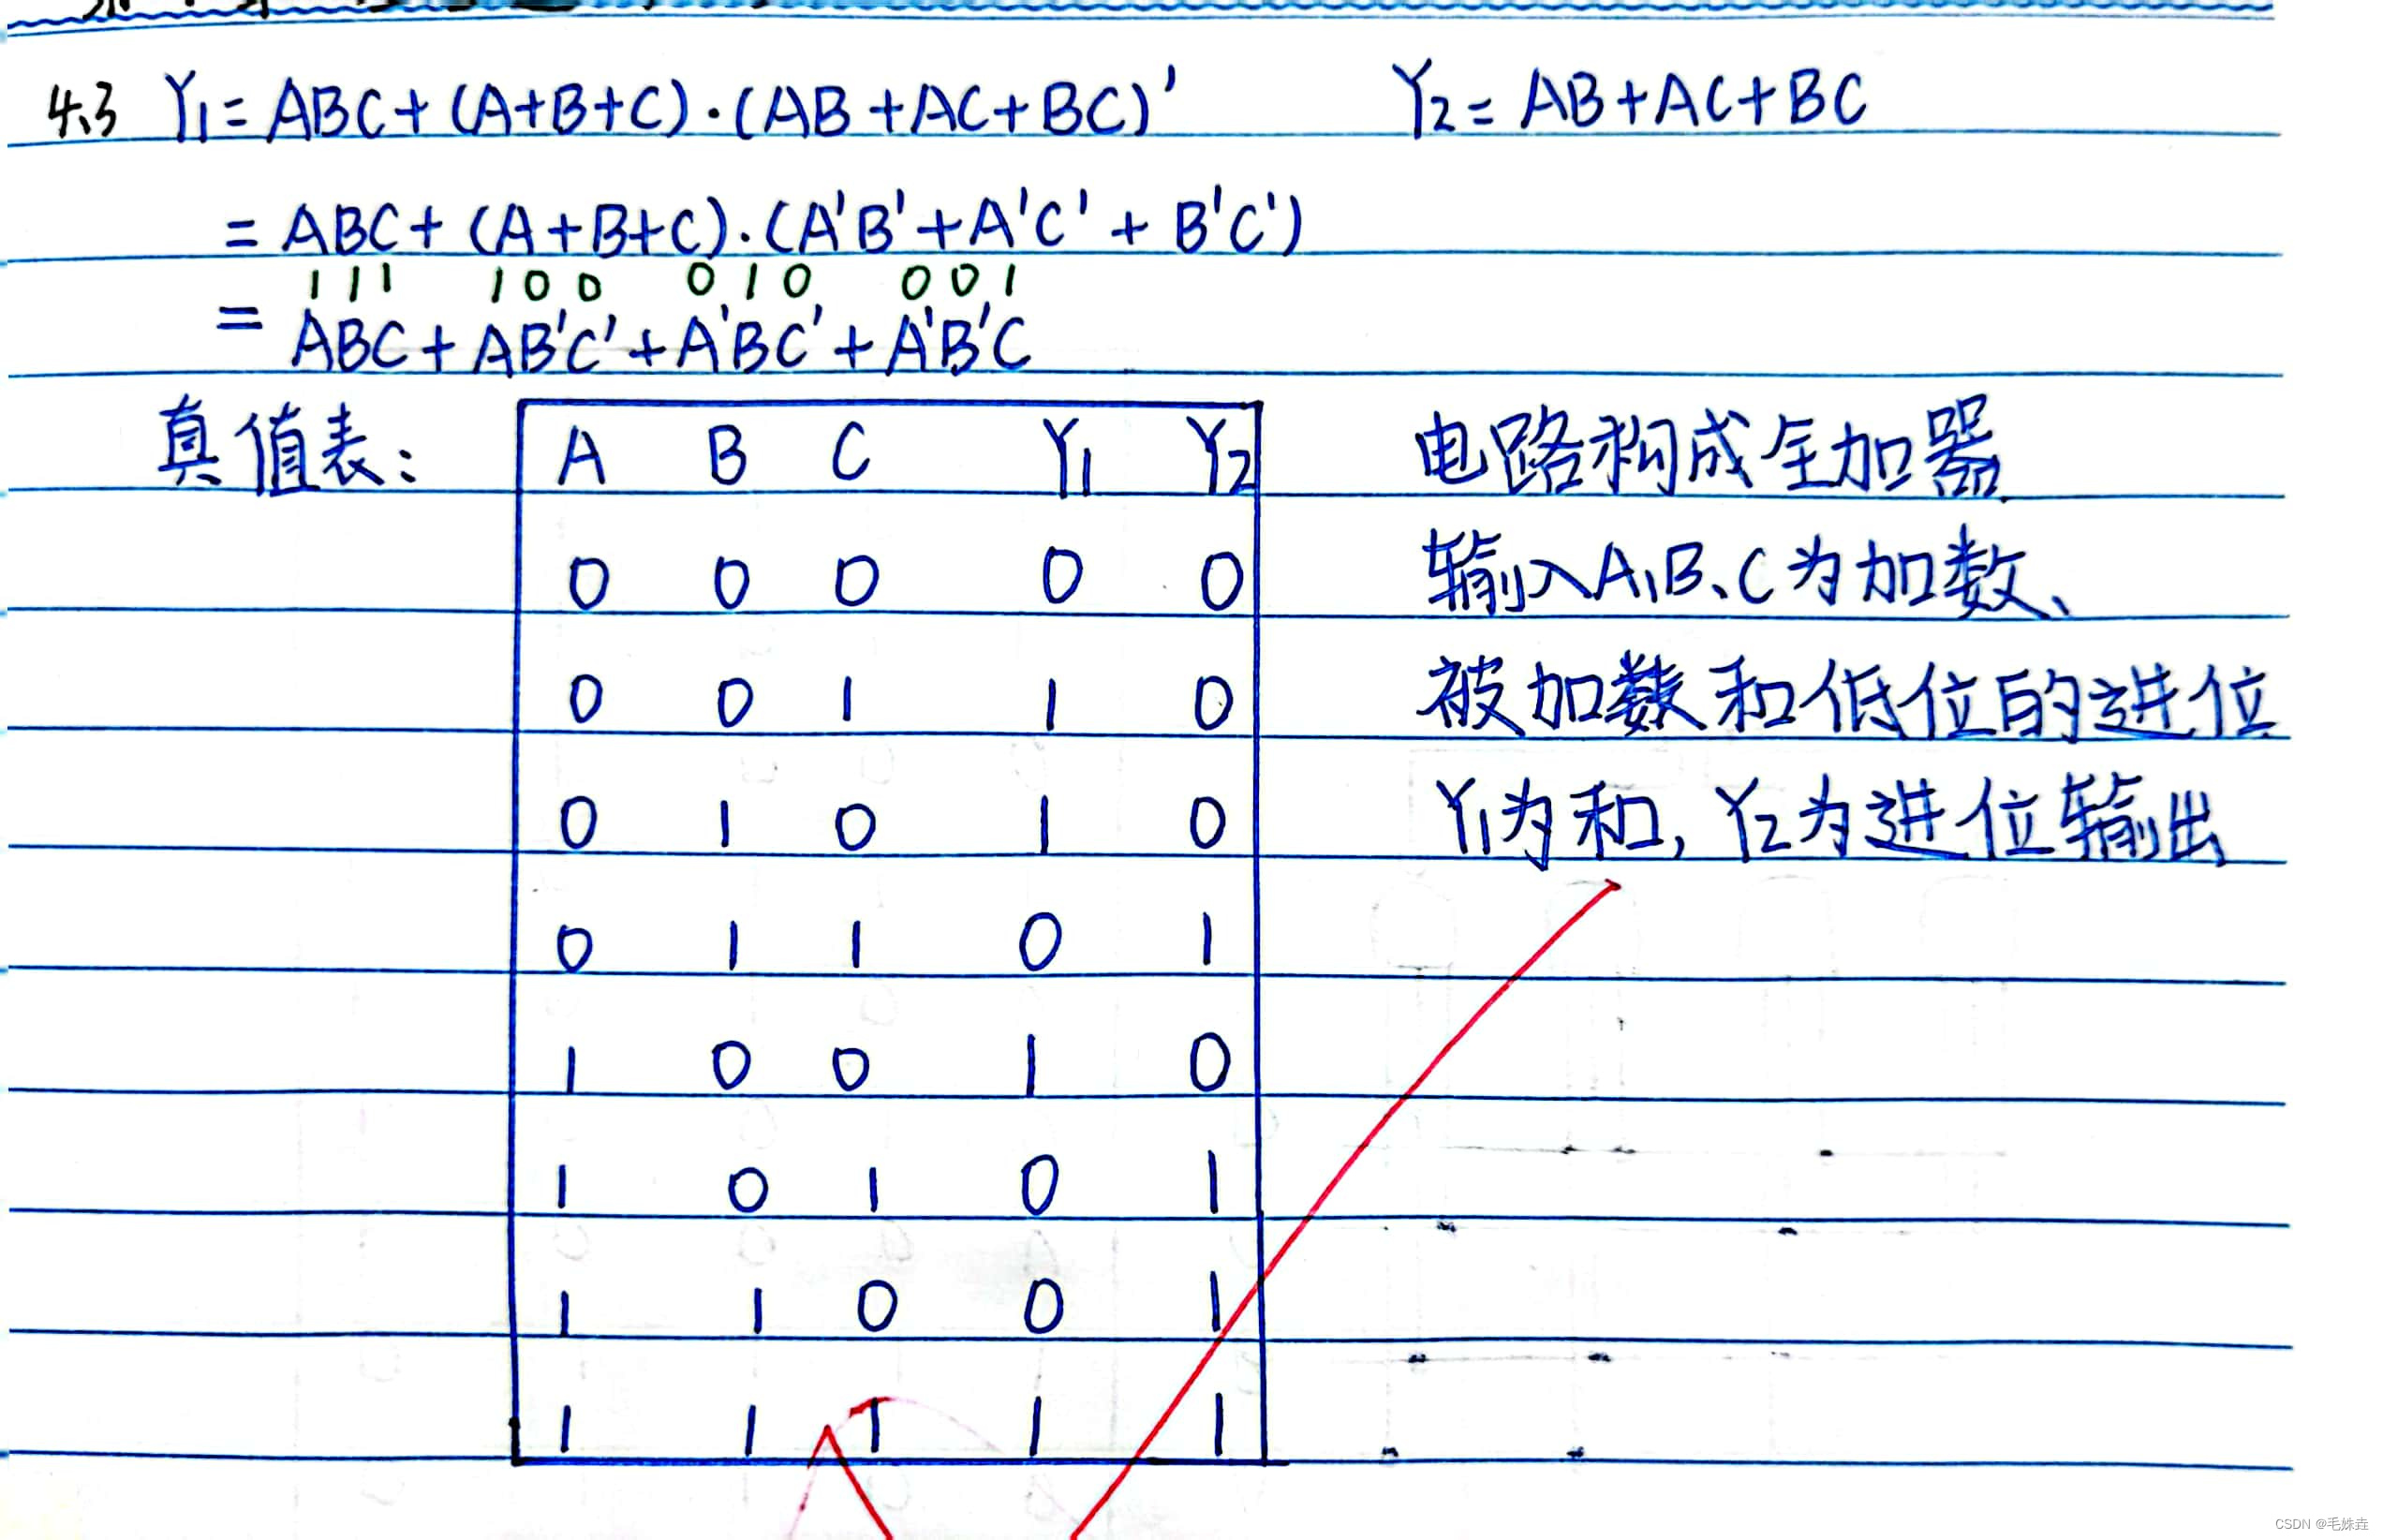 4.3 Y1 = ABC + (A+B+C)·(AB+AC+BC)' Y2 = AB+AC+BC
= ABC + (A+B+C)·(A'B'+A'C'+B'C')
111 100 010 001
= ABC + AB'C' + A'BC' + A'B'C
真值表:
A B C Y1 Y2
0 0 0 0 0
0 0 1 1 0
0 1 0 1 0
0 1 1 0 1
1 0 0 1 0
1 0 1 0 1
1 1 0 0 1
1 1 1 1 1
电路构成全加器
输入A、B、C为加数、
被加数和低位的进位
Y1为和, Y2为进位输出
CSDN @毛姝垚